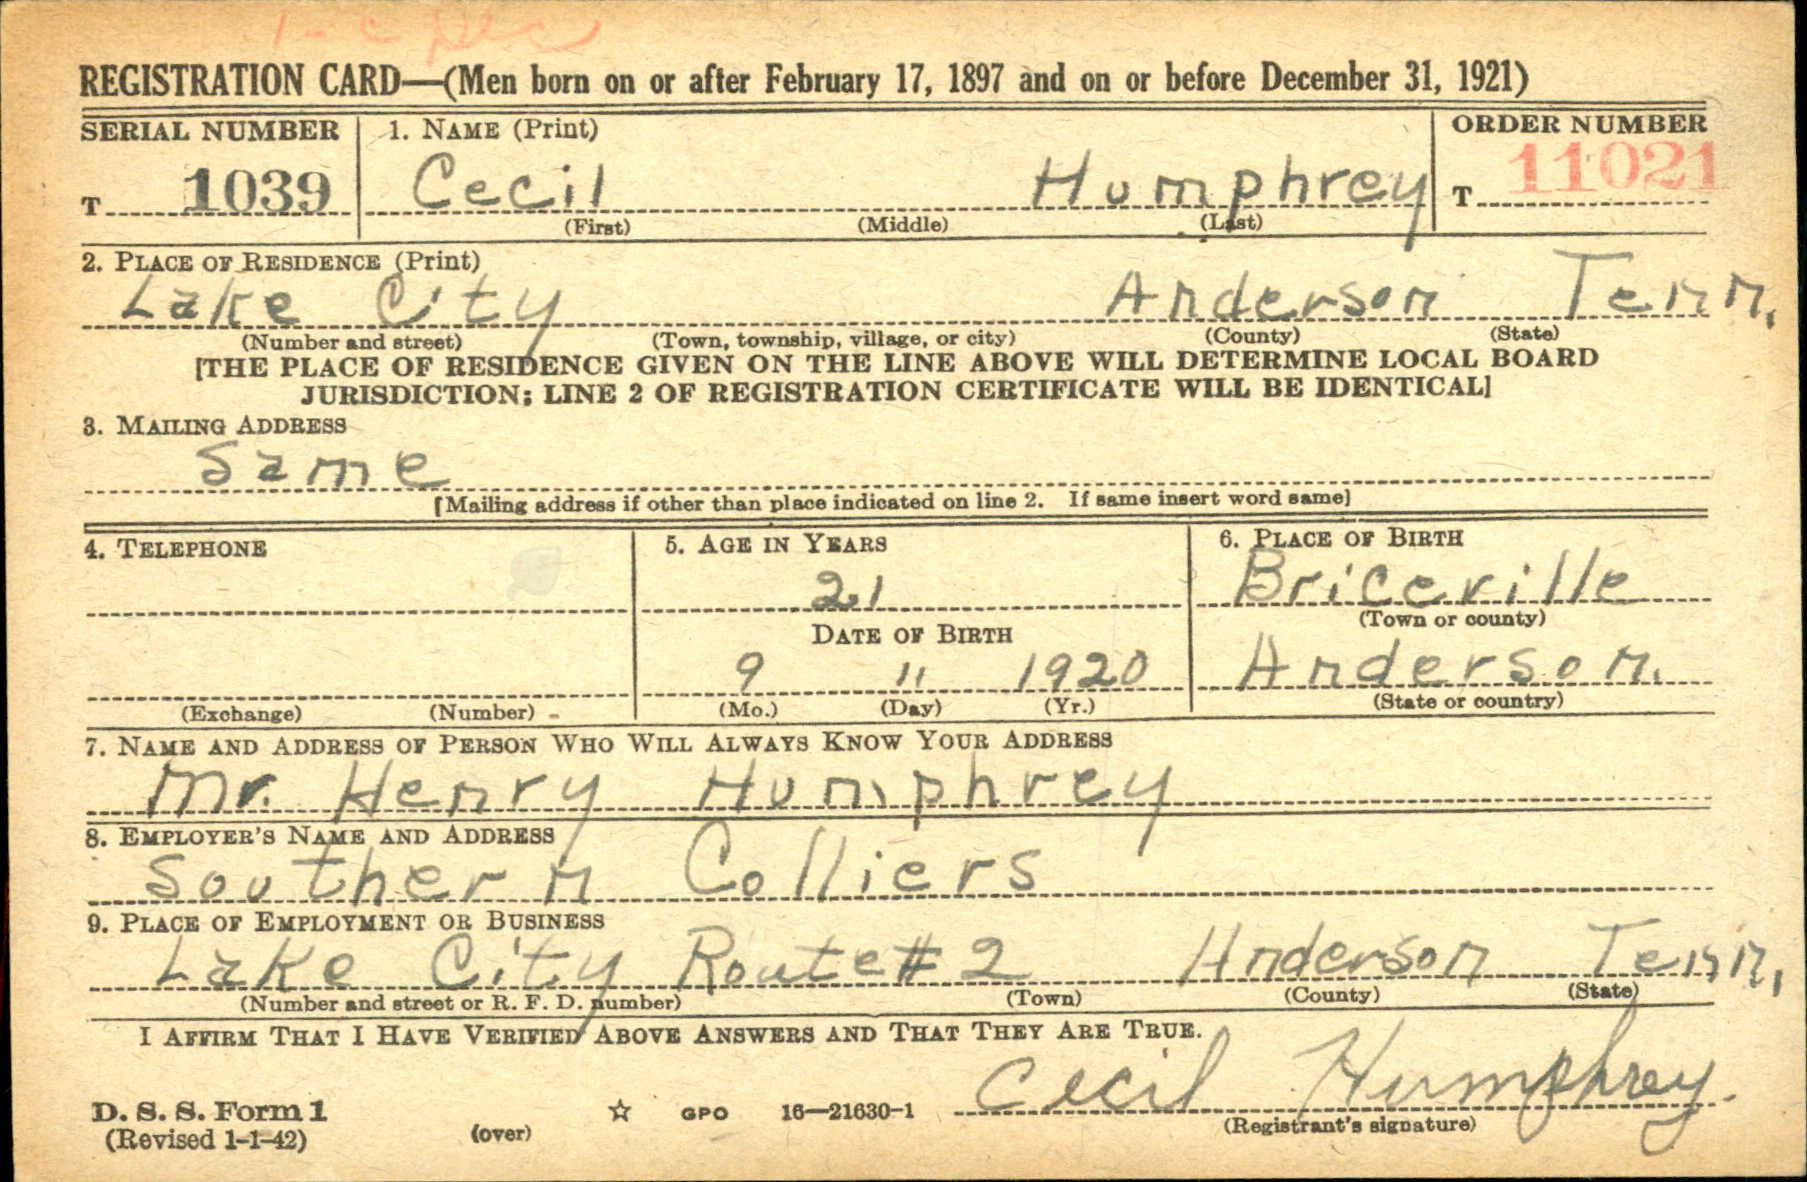 1-C Dec
REGISTRATION CARD—(Men born on or after February 17, 1897 and on or before December 31, 1921)
SERIAL NUMBER 1. NAME (Print) ORDER NUMBER
T 1039 Cecil Humphrey T 11021
(First) (Middle) (Last)
2. PLACE OF RESIDENCE (Print)
Lake City Anderson Tenn.
(Number and street) (Town, township, village, or city) (County) (State)
[THE PLACE OF RESIDENCE GIVEN ON THE LINE ABOVE WILL DETERMINE LOCAL BOARD
JURISDICTION; LINE 2 OF REGISTRATION CERTIFICATE WILL BE IDENTICAL]
3. MAILING ADDRESS
Same
[Mailing address if other than place indicated on line 2. If same insert word same]
4. TELEPHONE 5. AGE IN YEARS 6. PLACE OF BIRTH
21 Briceville
(Town or county)
DATE OF BIRTH
9 11 1920 Anderson.
(Exchange) (Number) (Mo.) (Day) (Yr.) (State or country)
7. NAME AND ADDRESS OF PERSON WHO WILL ALWAYS KNOW YOUR ADDRESS
Mr. Henry Humphrey
8. EMPLOYER'S NAME AND ADDRESS
Southern Colliers
9. PLACE OF EMPLOYMENT OR BUSINESS
Lake City Route # 2 Anderson Tenn.
(Number and street or R. F. D. number) (Town) (County) (State)
I AFFIRM THAT I HAVE VERIFIED ABOVE ANSWERS AND THAT THEY ARE TRUE.
Cecil Humphrey.
D. S. S. Form 1 ☆ GPO 16—21630-1 (Registrant's signature)
(Revised 1-1-42) (over)